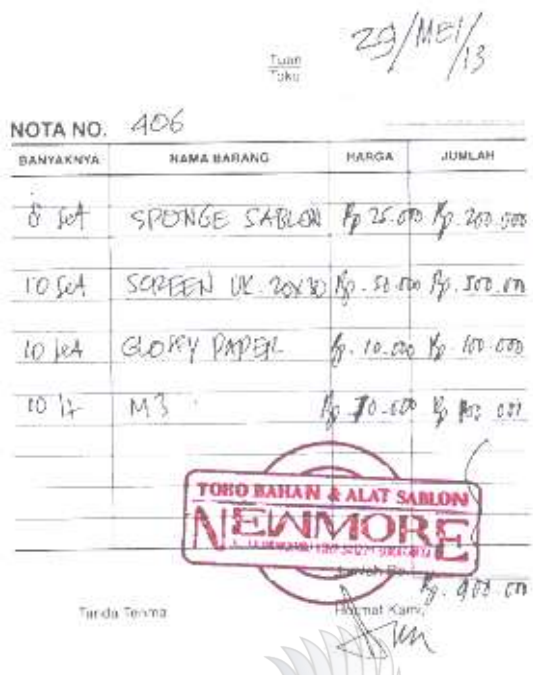 29/MEI/13
Tuan
Toko
NOTA NO. 406
BANYAKNYA NAMA BARANG HARGA JUMLAH
8 Set SPONGE SABLON Rp 25.000 Rp. 200.000
10 Set SCREEN UK. 20x30 Rp. 50.000 Rp. 500.000
10 set GLOSSY PAPER Rp. 10.000 Rp. 100.000
10 lt M3 Rp 10.000 Rp 100.000
TOKO BAHAN & ALAT SABLON
NEWMORE
Rp. 900.000
Tanda Terima Hormat Kami,